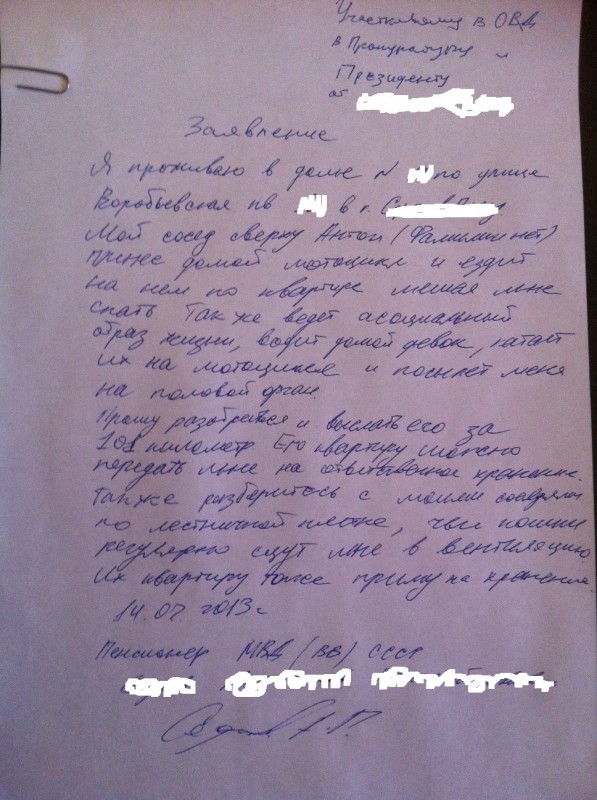 Участковому в ОВД
в Прокуратуру и
Президенту
от
Заявление
Я проживаю в доме N по улице
Воробьевская кв в г.
Мой сосед сверху Антон (Фамилии нет)
принес домой мотоцикл и ездит
на нем по квартире мешая мне
спать Так же ведет асоциальный
образ жизни, водит домой девок, катает
их на мотоцикле и посылет меня
на половой орган.
Прошу разобраться и выслать его за
101 километр Его квартиру можно
передать мне на ответственное хранение.
Также разберитесь с моими соседями
по лестничной клетке, чьи кошки
регулярно ссут мне в вентиляцию.
Их квартиру тоже приму на хранение.
14.02.2013г
Пенсионер МВД (ВВ) СССР